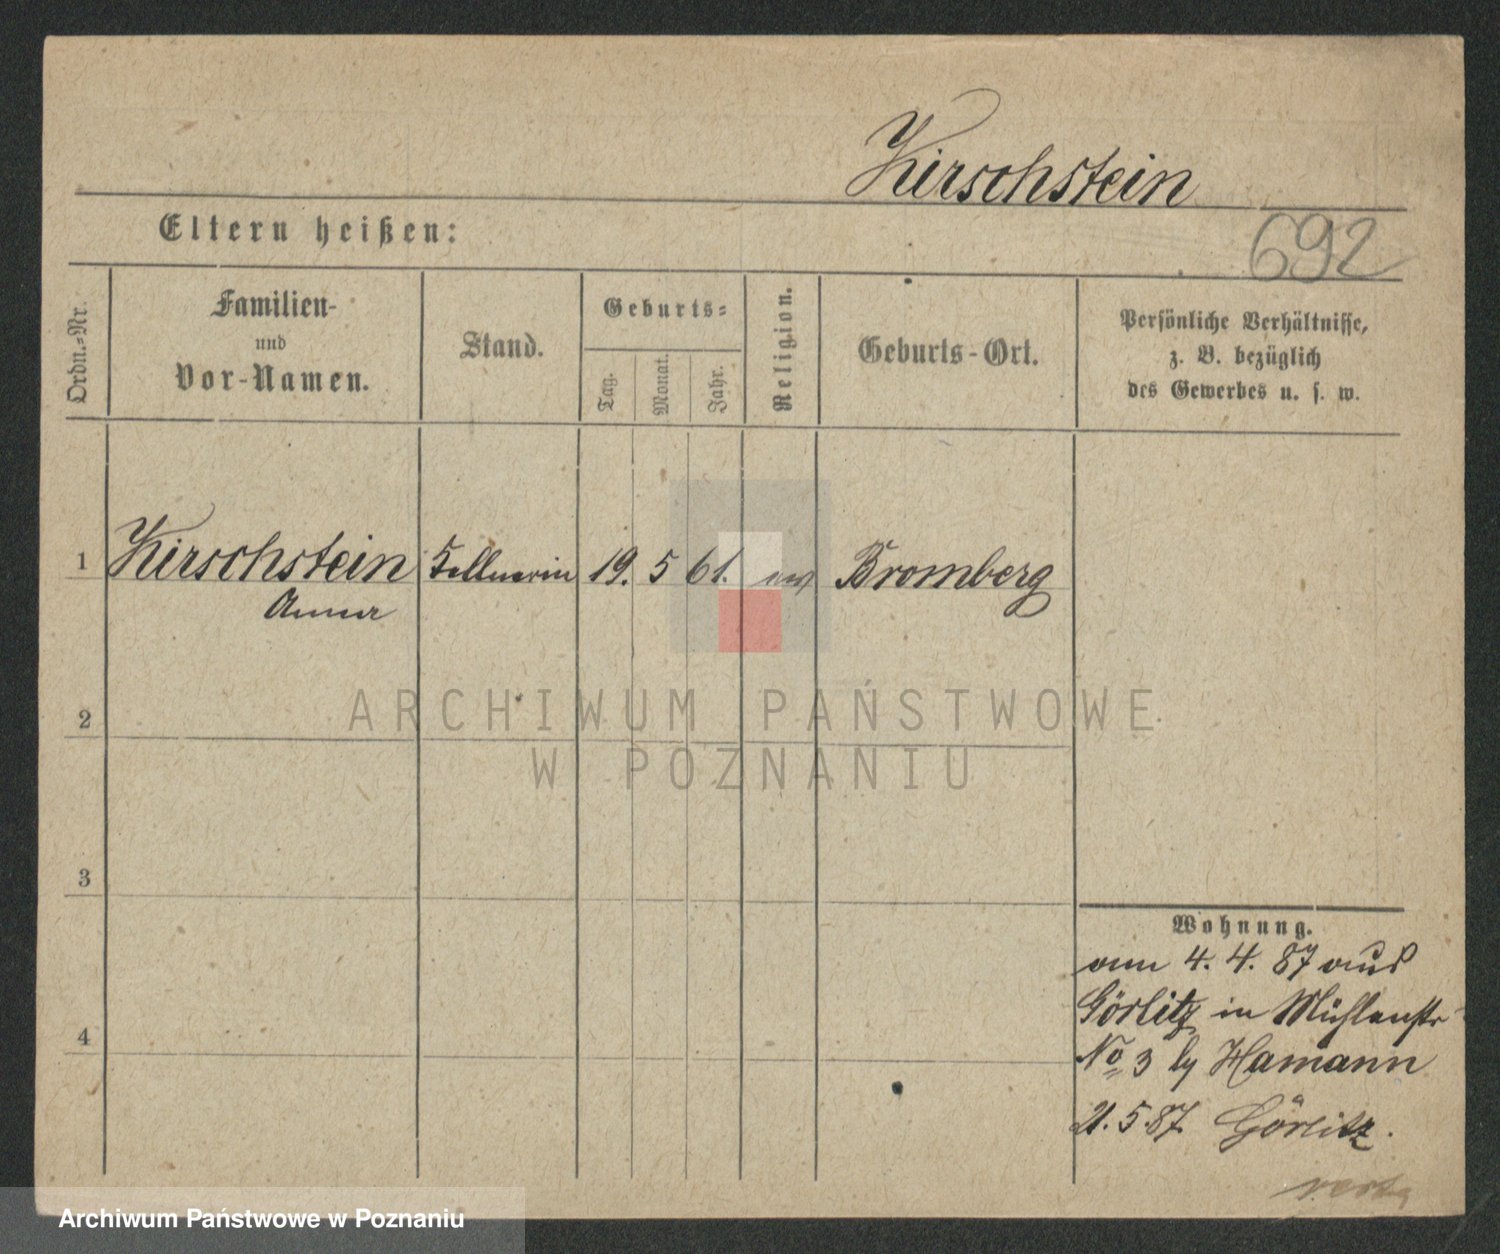 Kirschstein
692
Eltern heißen:
Ordn.-Nr.
Familien-
und
Vor-Namen.
Stand.
Geburts-
Tag.
Monat.
Jahr.
Religion.
Geburts-Ort.
Persönliche Verhältnisse,
z. B. bezüglich
des Gewerbes u. s. w.
1 Kirschstein 19. 5 61. ev Bromberg
Anna
2
ARCHIWUM PAŃSTWOWE
W POZNANIU
3
Wohnung.
am 4. 4. 87 aus
Görlitz in Mühlenstr
4
No 3 by Hamann
21. 5. 87. Görlitz.
Archiwum Państwowe w Poznaniu